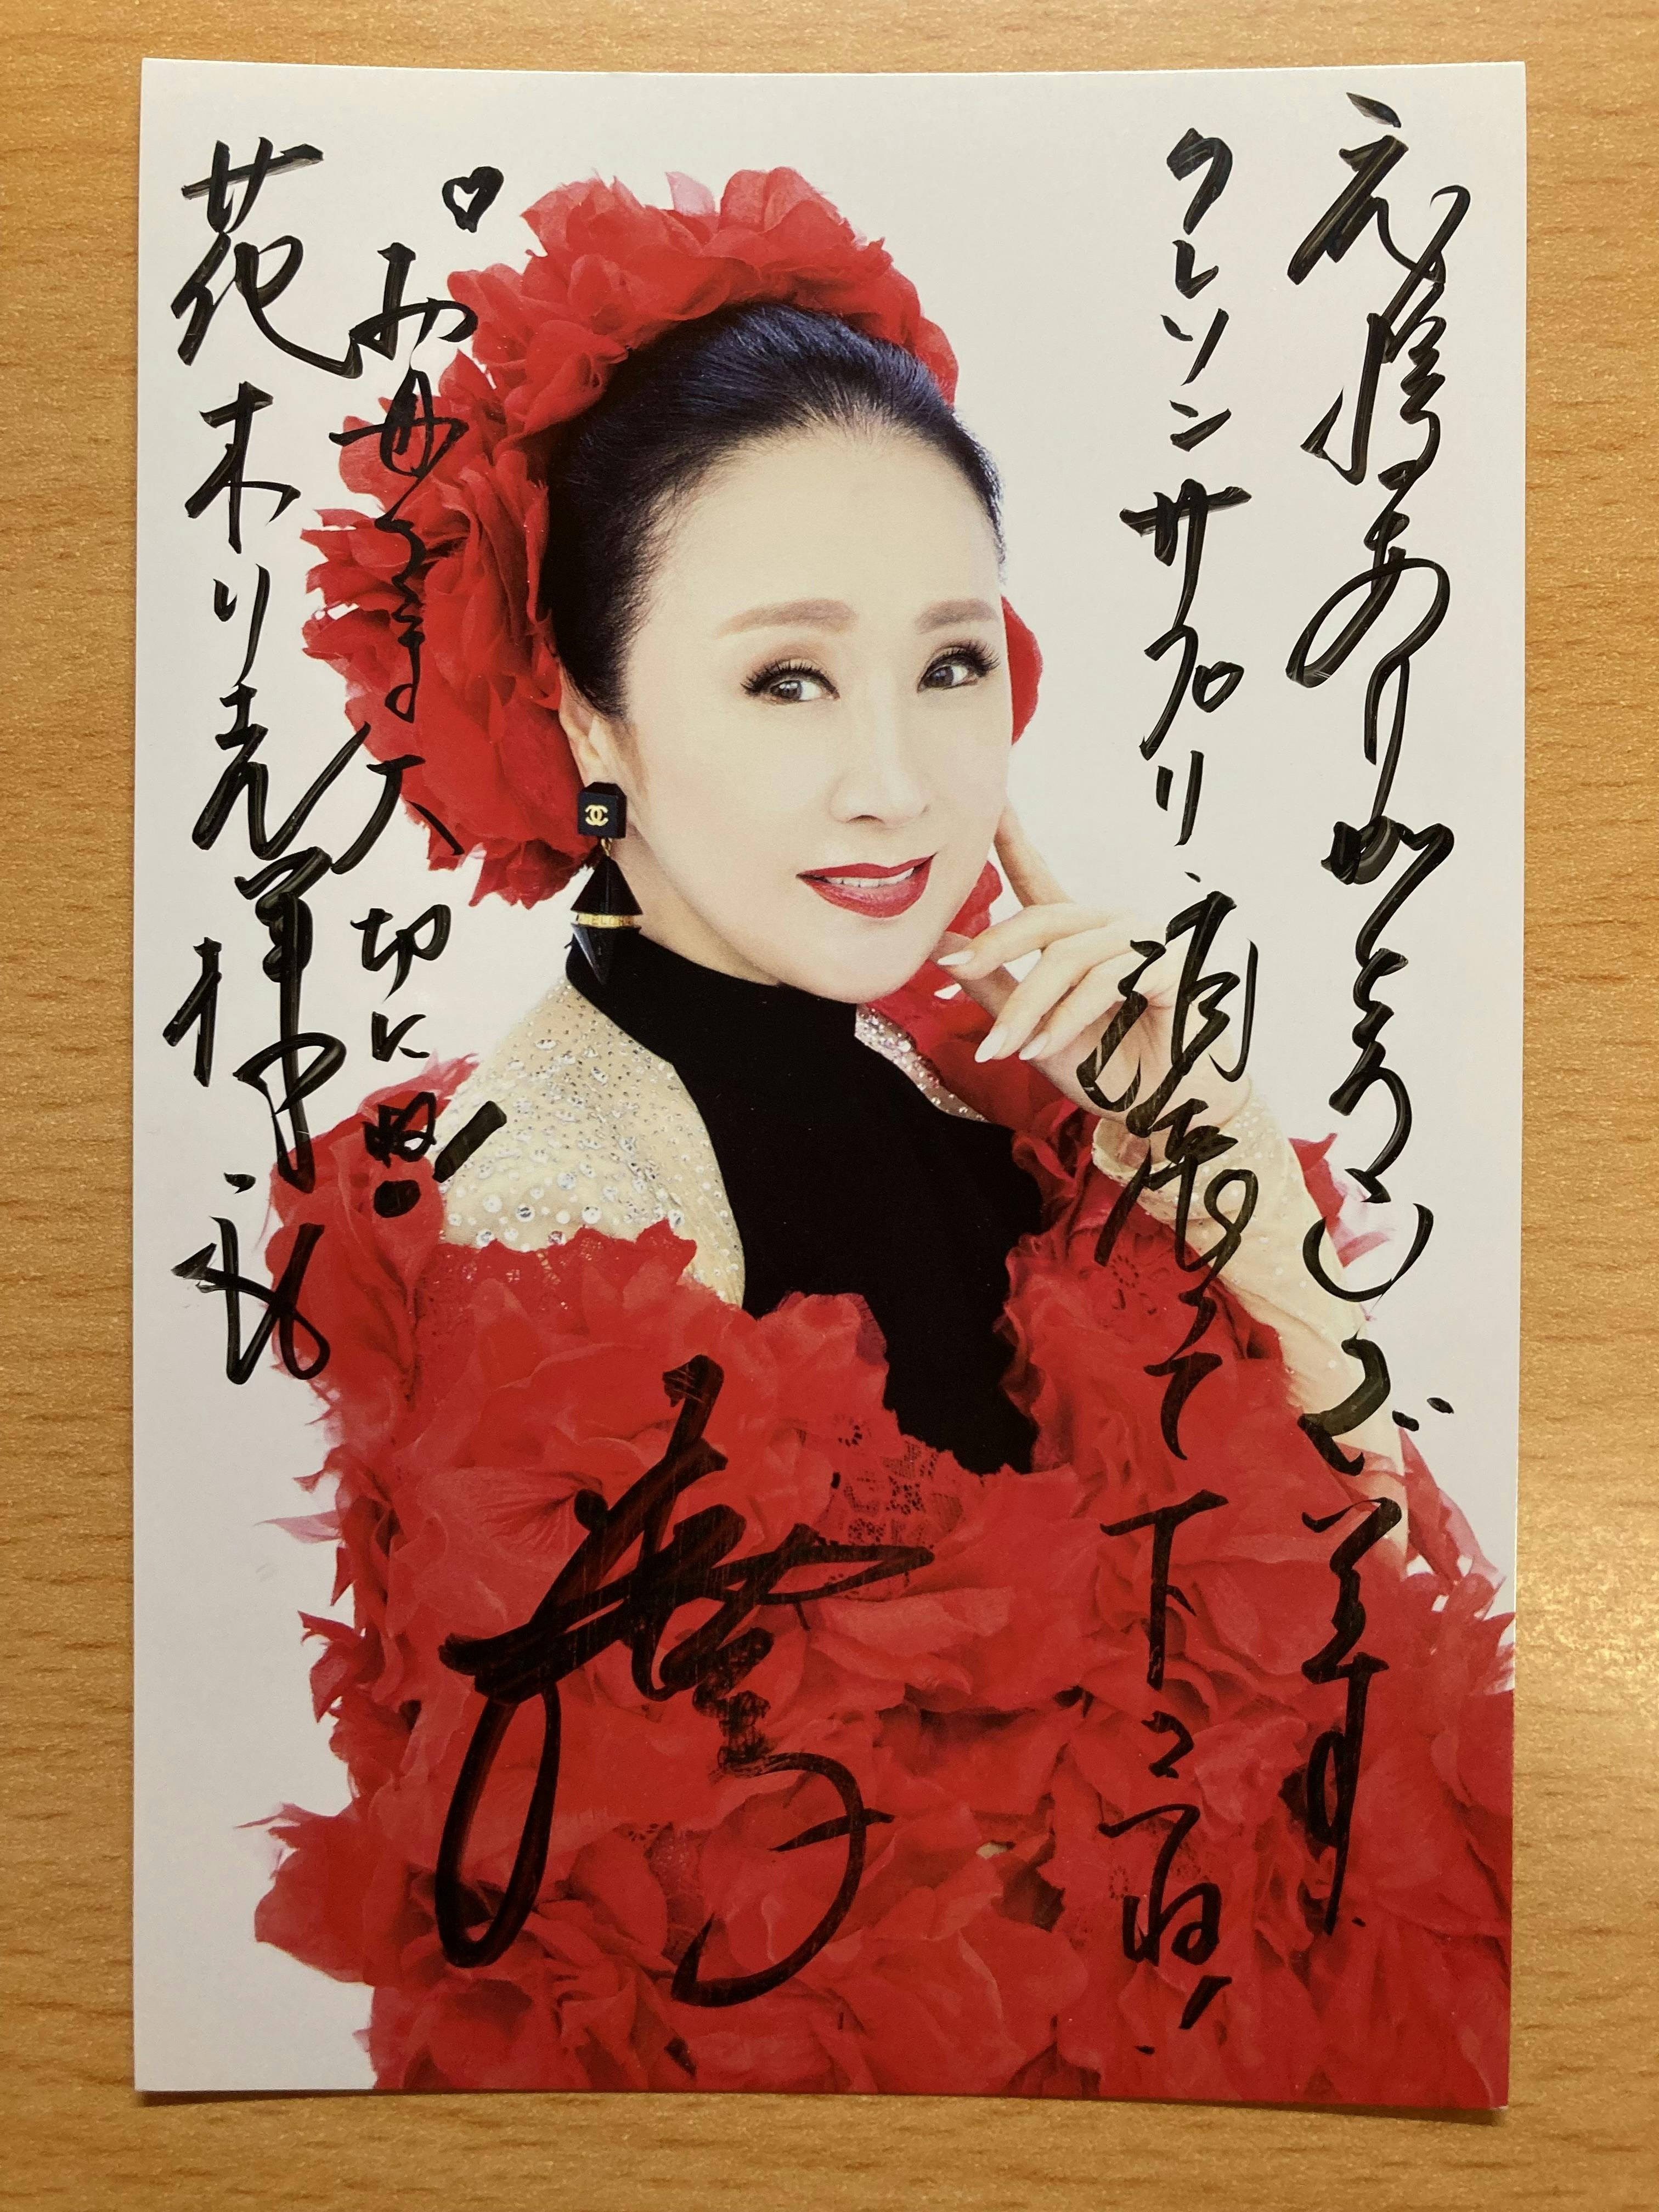 応援ありがとうございます
クレソンサプリ頑張って下さいね!
♡お母さま大切にね!
花木り様